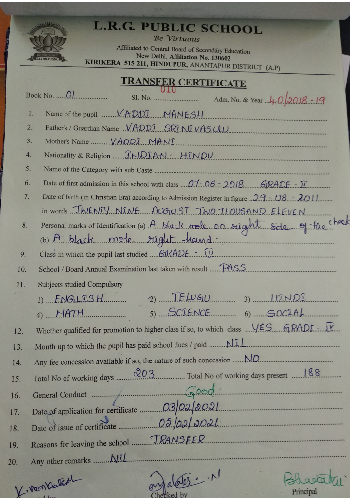 L.R.G. PUBLIC SCHOOL
Be Virtuous
Affiliated to Central Board of Secondary Education
New Delhi, Affiliation No. 130602
KIRIKERA 515 211, HINDUPUR, ANANTAPUR DISTRICT (A.P)
TRANSFER CERTIFICATE
Book No. 01 Sl. No. 010 Adm. No. & Year 40/2018-19
1. Name of the pupil VADDI MAHESH
2. Father's / Guardian Name VADDI SRINIVASULU
3. Mother's Name VADDI MANI
4. Nationality & Religion INDIAN HINDU
5. Name of the Category with sub Caste
6. Date of first admission in this school with class 07-06-2018 GRADE-II
7. Date of birth (in Christian Era) according to Admission Register in figure 29-08-2011
in words TWENTY NINE AUGUST TWO THOUSAND ELEVEN
8. Personal marks of Identification (a) A black mole on right side of the cheek
(b) A black mole right hand
9. Class in which the pupil last studied GRADE - III
10. School / Board Annual Examination last taken with result PASS
11. Subjects studied Compulsory
1) ENGLISH 2) TELUGU 3) HINDI
4) MATH 5) SCIENCE 6) SOCIAL
12. Whether qualified for promotion to higher class if so, to which class YES GRADE-IV
13. Month up to which the pupil has paid school fees / paid NIL
14. Any fee concession available if so, the nature of such concession NO
15. Total No of working days 203 Total No of working days present 188
16. General Conduct Good
17. Date of application for certificate 03/02/2021
18. Date of issue of certificate 05/02/2021
19. Reasons for leaving the school TRANSFER
20. Any other remarks NIL
Checked by Principal